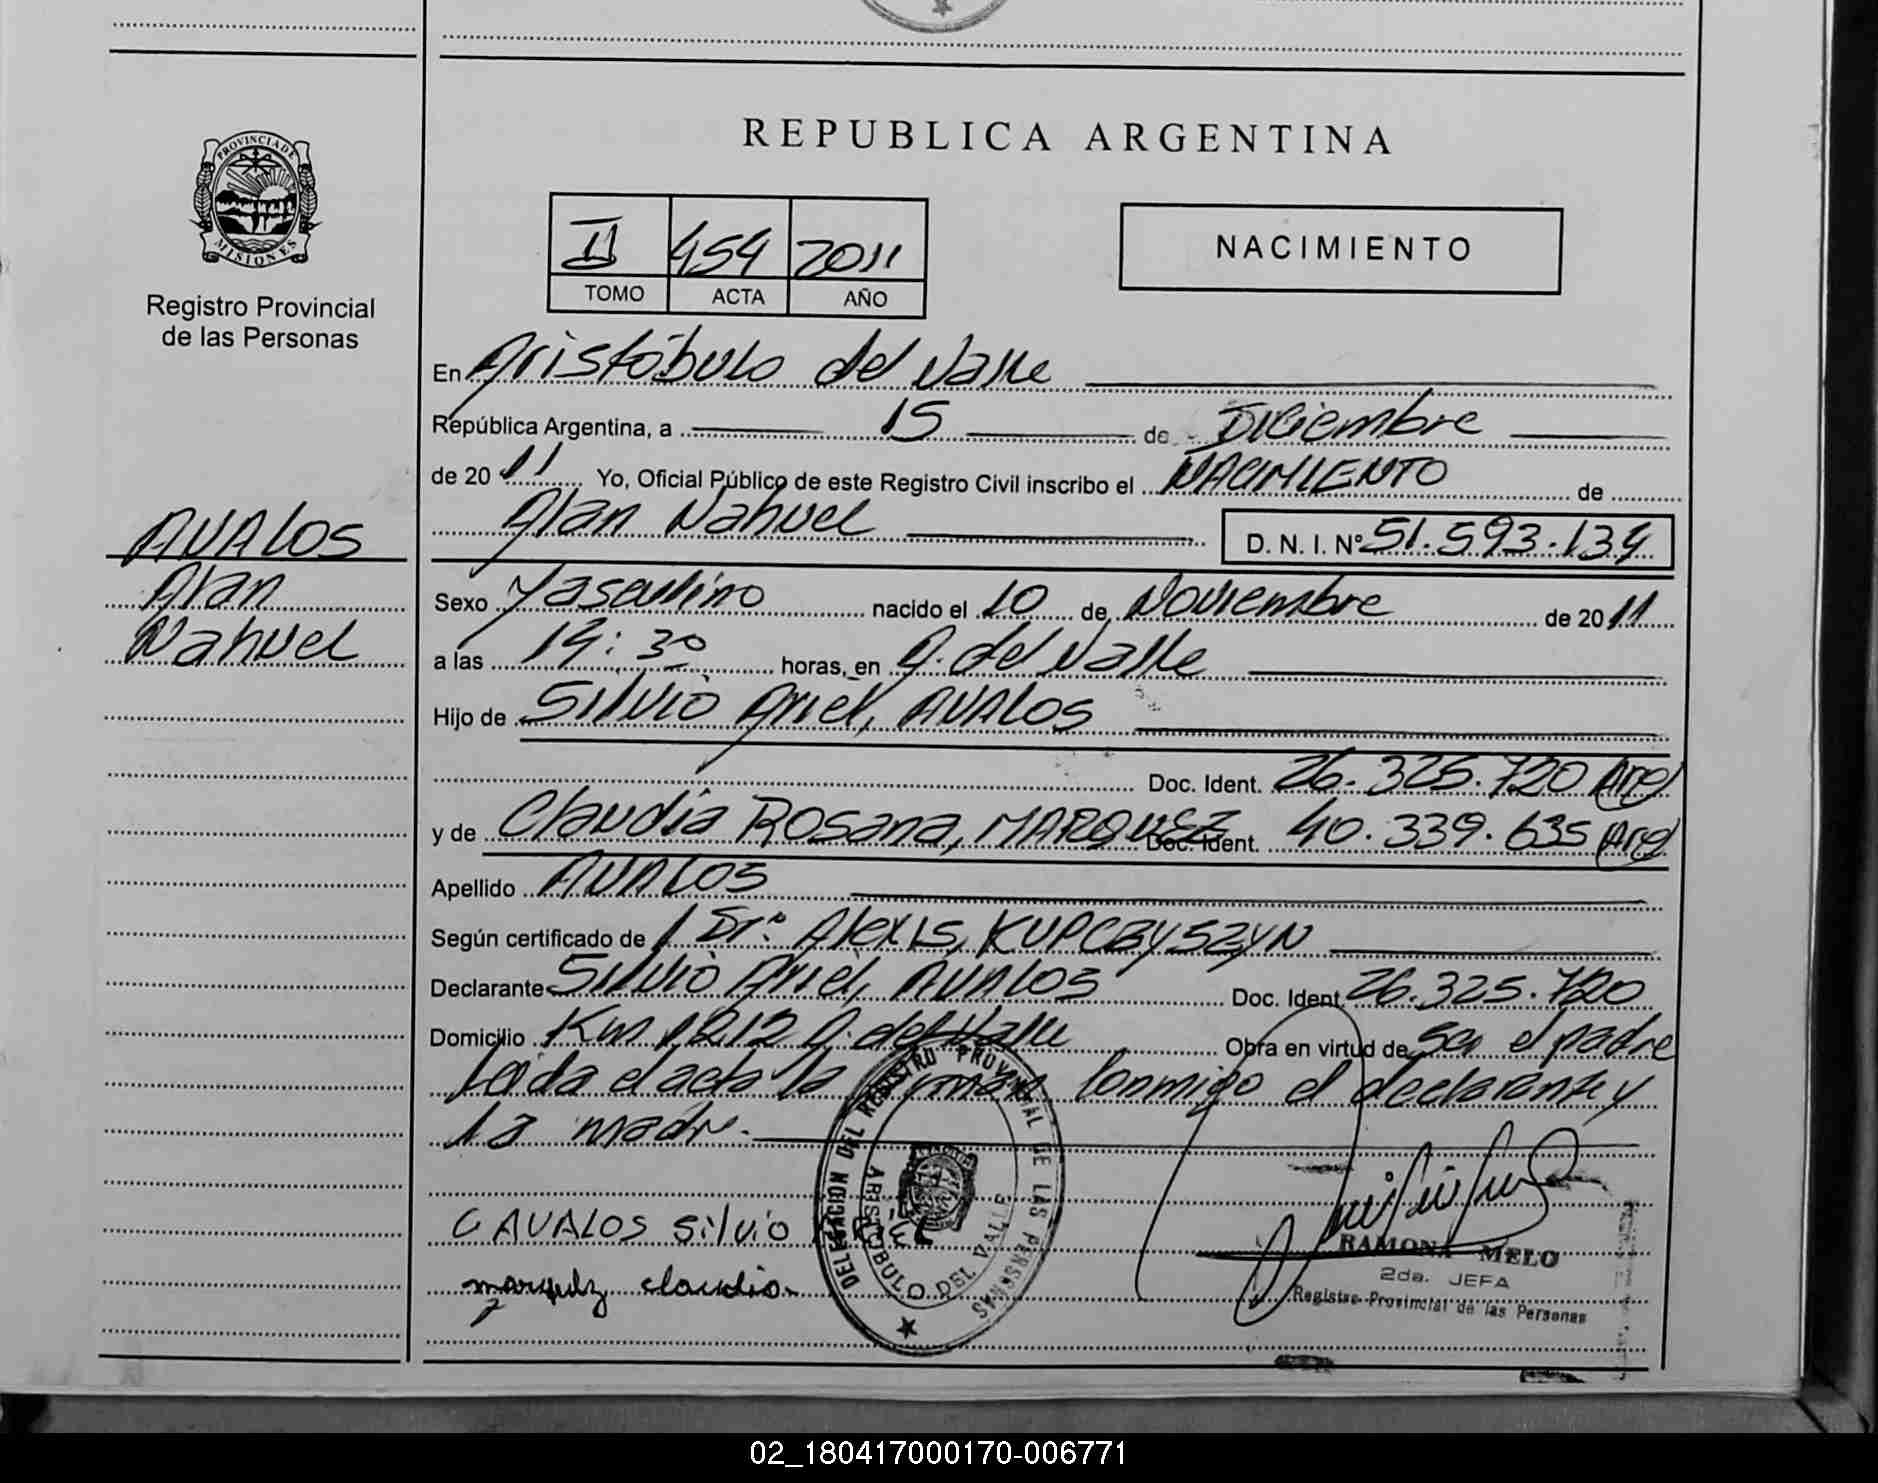 PROVINCIA DE
MISIONES
Registro Provincial
de las Personas
AVALOS
Alan
Nahuel
REPUBLICA ARGENTINA
II 454 2011
TOMO ACTA AÑO
NACIMIENTO
En Aristóbulo del Valle
República Argentina, a 15 de Diciembre
de 20 11 Yo, Oficial Público de este Registro Civil inscribo el NACIMIENTO de
Alan Nahuel D. N. I. Nº 51.593.134
Sexo Masculino nacido el 10 de Noviembre de 20 11
a las 14:30 horas, en A. del Valle
Hijo de Silvio Ariel, AVALOS
Doc. Ident. 26.325.720 Arg
y de Claudia Rosana, MARQUEZ Doc. Ident. 40.339.635 Arg
Apellido AVALOS
Según certificado de Dr. Alexis, KUPCZYSZYN
Declarante Silvio Ariel, AVALOS Doc. Ident. 26.325.720
Domicilio Km 1212 A. del Valle Obra en virtud de ser el padre
Leída el acta la firman conmigo el declarante y
la madre.
AVALOS Silvio
marquez claudia
DELEGACION DEL REGISTRO PROVINCIAL DE LAS PERSONAS
ARISTOBULO DEL VALLE
RAMONA MELO
2da. JEFA
Registro Provincial de las Personas
02_180417000170-006771